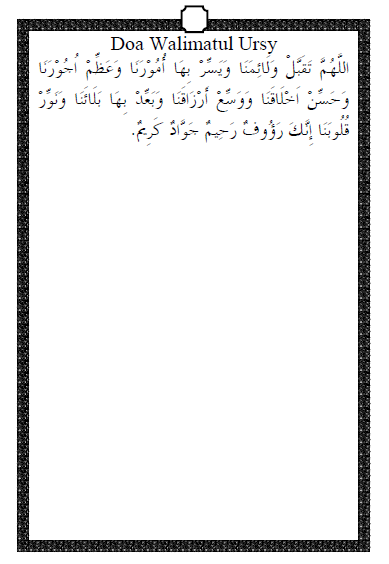 Doa Walimatul Ursy
اللَّهُمَّ تَقَبَّلْ وَلَائِمَنَا وَيَسِّرْ بِهَا أُمُوْرَنَا وَعَظِّمْ اُجُوْرَنَا
وَحَسِّنْ اَخْلَاقَنَا وَوَسِّعْ أَرْزَاقَنَا وَبَعِّدْ بِهَا بَلَائَنَا وَنَوِّرْ
قُلُوبَنَا إِنَّكَ رَؤُوفٌ رَحِيمٌ جَوَّادٌ كَرِيمٌ.